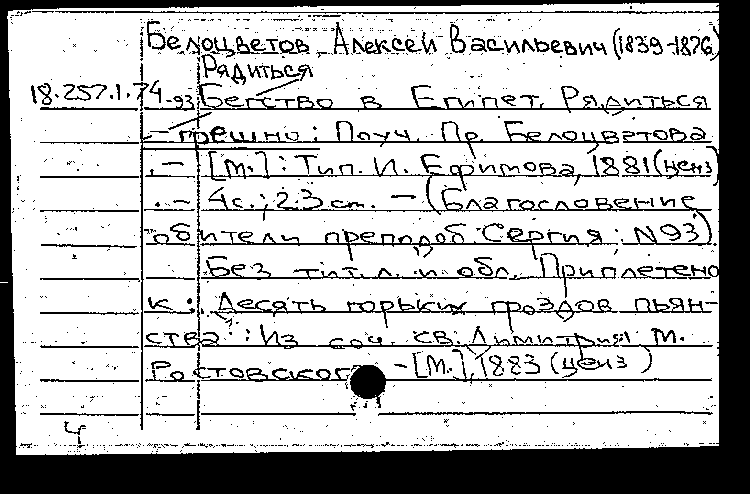 Белоцветов Алексей Васильевич (1839-1876)
Рядиться
18.257.1.74-93 Бегство в Египет. Рядиться
грешно: Поуч. Пр. Белоцветова
.- [М.]: Тип. И. Ефимова, 1881 (ценз)
.- 4 с.; 23 cm. - (Благословение
обители преподоб. Сергия; N93)
Без тит. л. и обл. Приплетено
к: Десять горьких гроздов пьян-
ства: Из соч. св. Димитрия м.
Ростовского - [М.], 1883 (ценз)
4